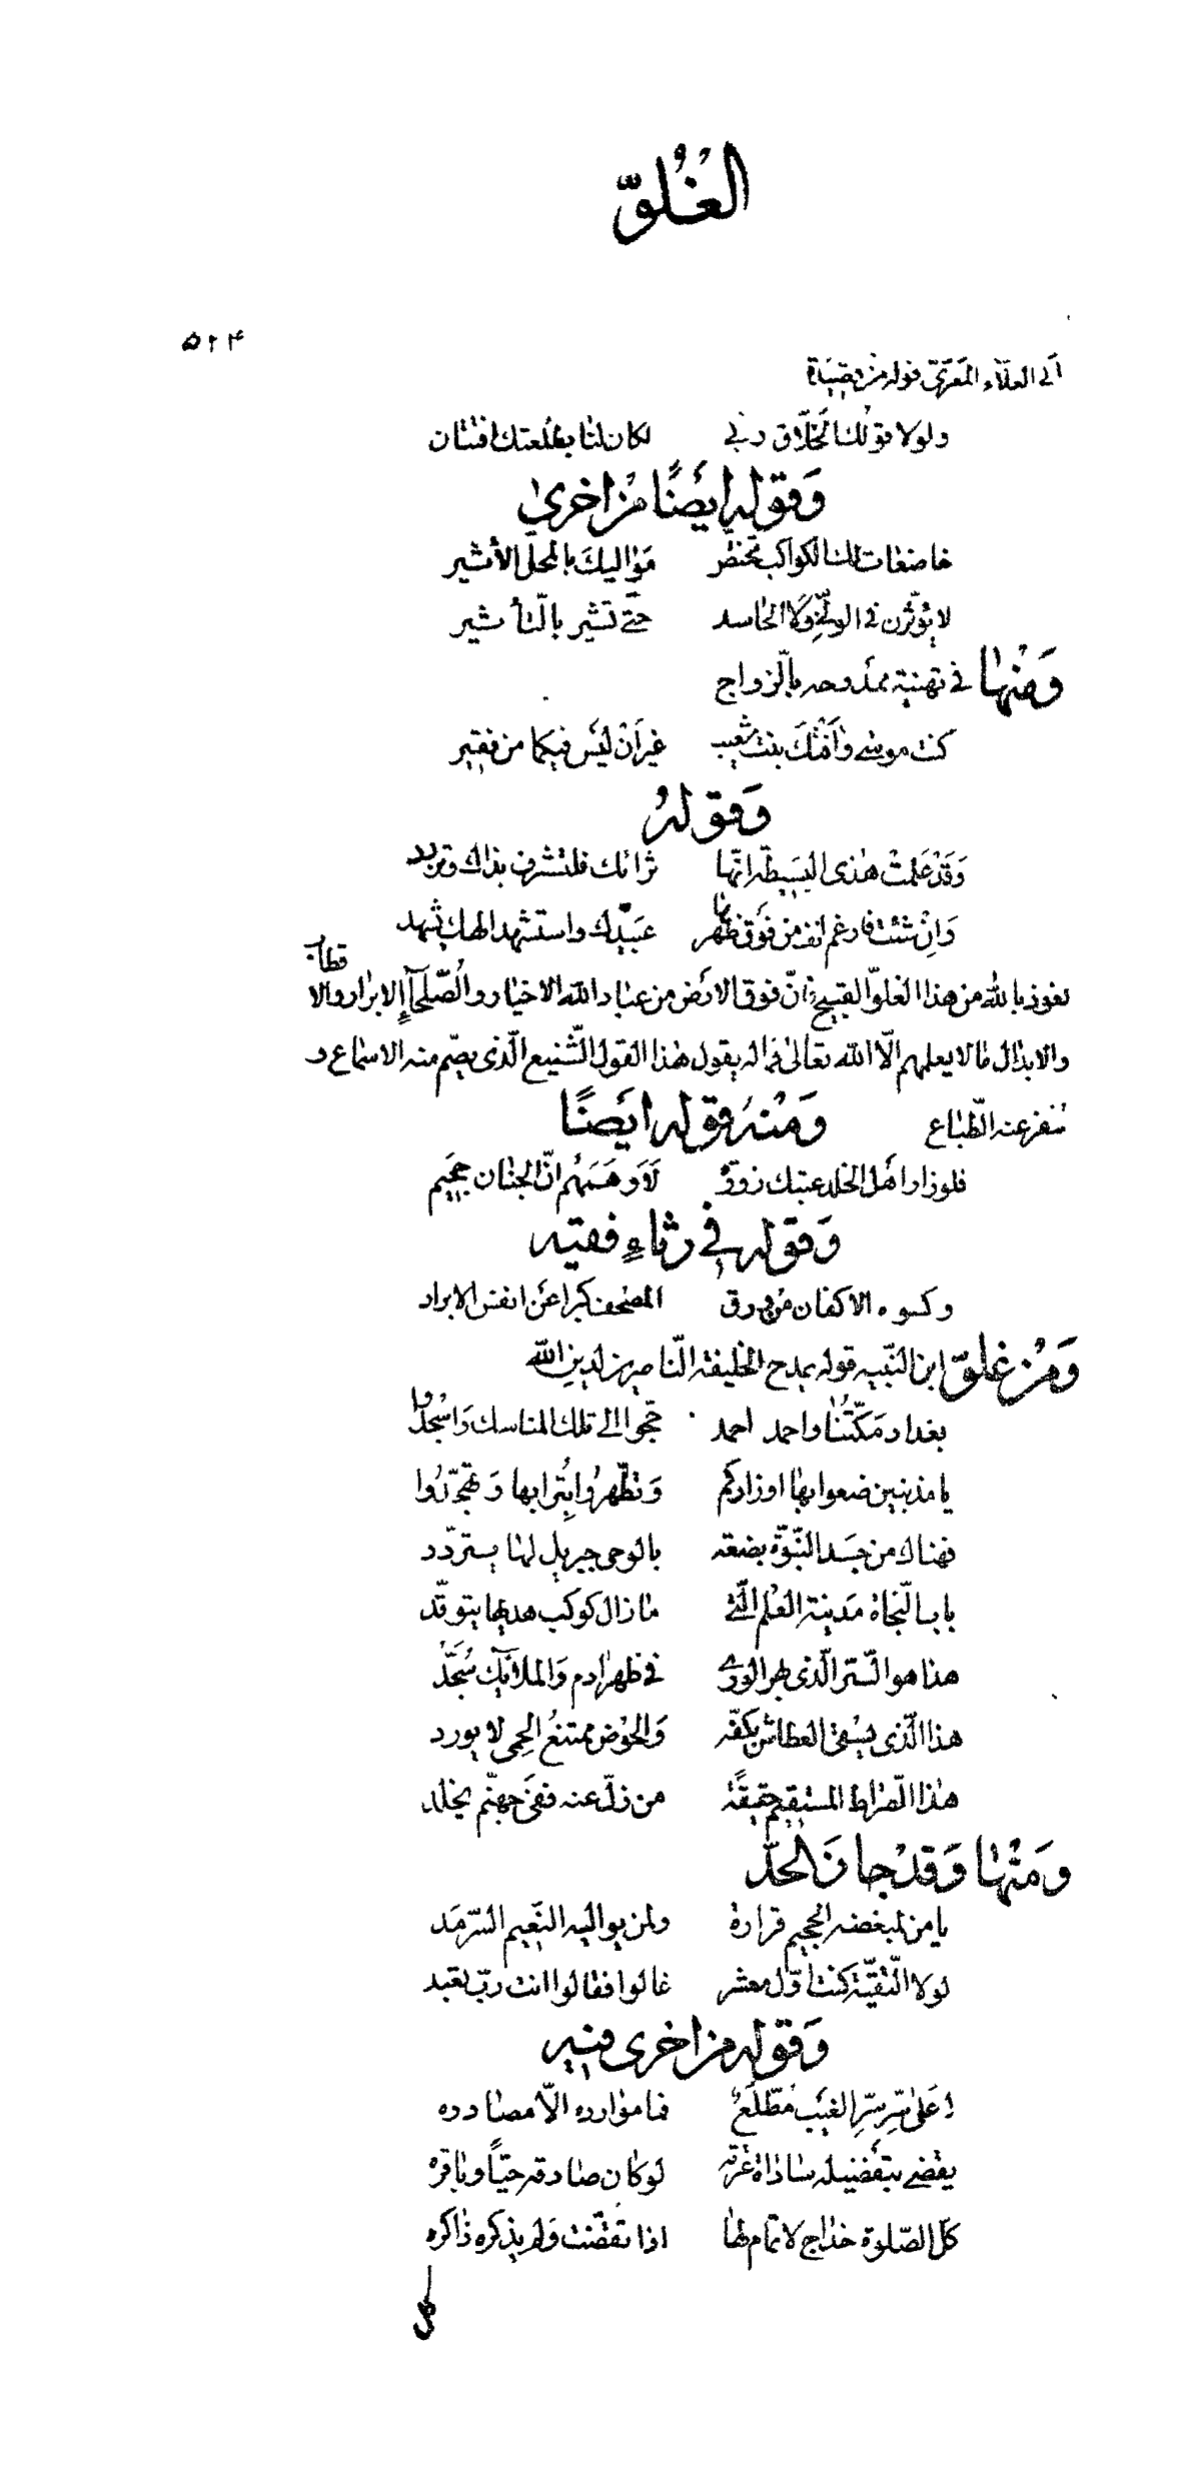 الغُلُوّ
٥٢٤
ابى العلاء المعَرّىّ قوله من قصيدة
ولولا قولك الخلّاق ربّي لكان لنا بطلعتك افتتان
وَقوله ايضًا من اخرىٰ
خاضعات لك الكواكب تختصّ مَواليكَ بالمحلّ الأثير
لا يؤثّرن في الوليّ ولا الحاسد حتّى تشير بالتّأشير
وَمنها في تهنية ممدوحه بالزواج
كنت موسى وافتك بنت شعيب غير اَنْ ليس فيكما من فقير
وَقوله
وَقَدْ عَلمتْ هٰذى البَسيطة انّها تراثك فلتشرف بذاك وتزدد
وَانْ شئت فازعم انّ من فوق ظهرها عبيدك واستشهد الهك يشهد
نعوذ بالله من هذا الغلوّ القبيح فانّ فوق الارض من عباد الله الاخيار والصّلحآءِ الابرار والاقطاب
والابدال ما لا يعلمهم الّا الله تعالىٰ فما له يقول هٰذا القول الشّنيع الّذى يصمّ منه الاسماع و
تنفر عنه الطّباع وَمنه قوله ايضًا
فلو زار اهل الخلد عتبك زورة لَاَوهَمَهُم انّ الجنان جحيم
وَقوله في رثاءِ فقيه
وكسوه الاكفان من ورق المصحف كبرا عن انفس الابراد
وَمن غلوّ ابن النّبيه قوله يمدح الخليفة النّاصر لدين الله
بغداد مَكّتُنا واحمد احمد حجّوا الى تلك المناسك وَاسْجُدُوا
يا مذنبين ضعوا بها اوزاركم وَتطّهرُوا بتُرابها وَتهجّدُوا
فهناك من جسَد النّبوّة بضعة بالوحى جبريل لها يتردّد
باب النّجاة مَدينة العلم الّتي ما زال كوكب هديها يتوقّد
هذا هو السّرّ الّذى بهر الورى في ظهر ادم وَالملائِك سُجَّدُ
هذا الّذى يسقى العطاش بكفّه وَالحوض ممتنعُ الحِمى لا يورد
هٰذا الصّراط المستقيم حقيقةً من زلّ عنه ففى جهنّم يخلد
وَمنها وَقد جاز الحدّ
يا من لمبغضه الجحيم قرارة ولمن يواليه النّعيم السّرمَد
لولا التّقيّة كنت اوّل معشر غالوا فقالوا انت ربّ يعبد
وَقوله من اخرى فيه
اِ عَلىٰ سِرّ سِرِّ الغيب مُطّلعٌ فما موارده الّا مصادره
يقضى بتفضيله سادات عترته لو كان صادقه حيًّا وباقره
كلّ الصّلوة خداج لا تمام لها اذا تقضّت وَلم يذكره ذاكره
كل